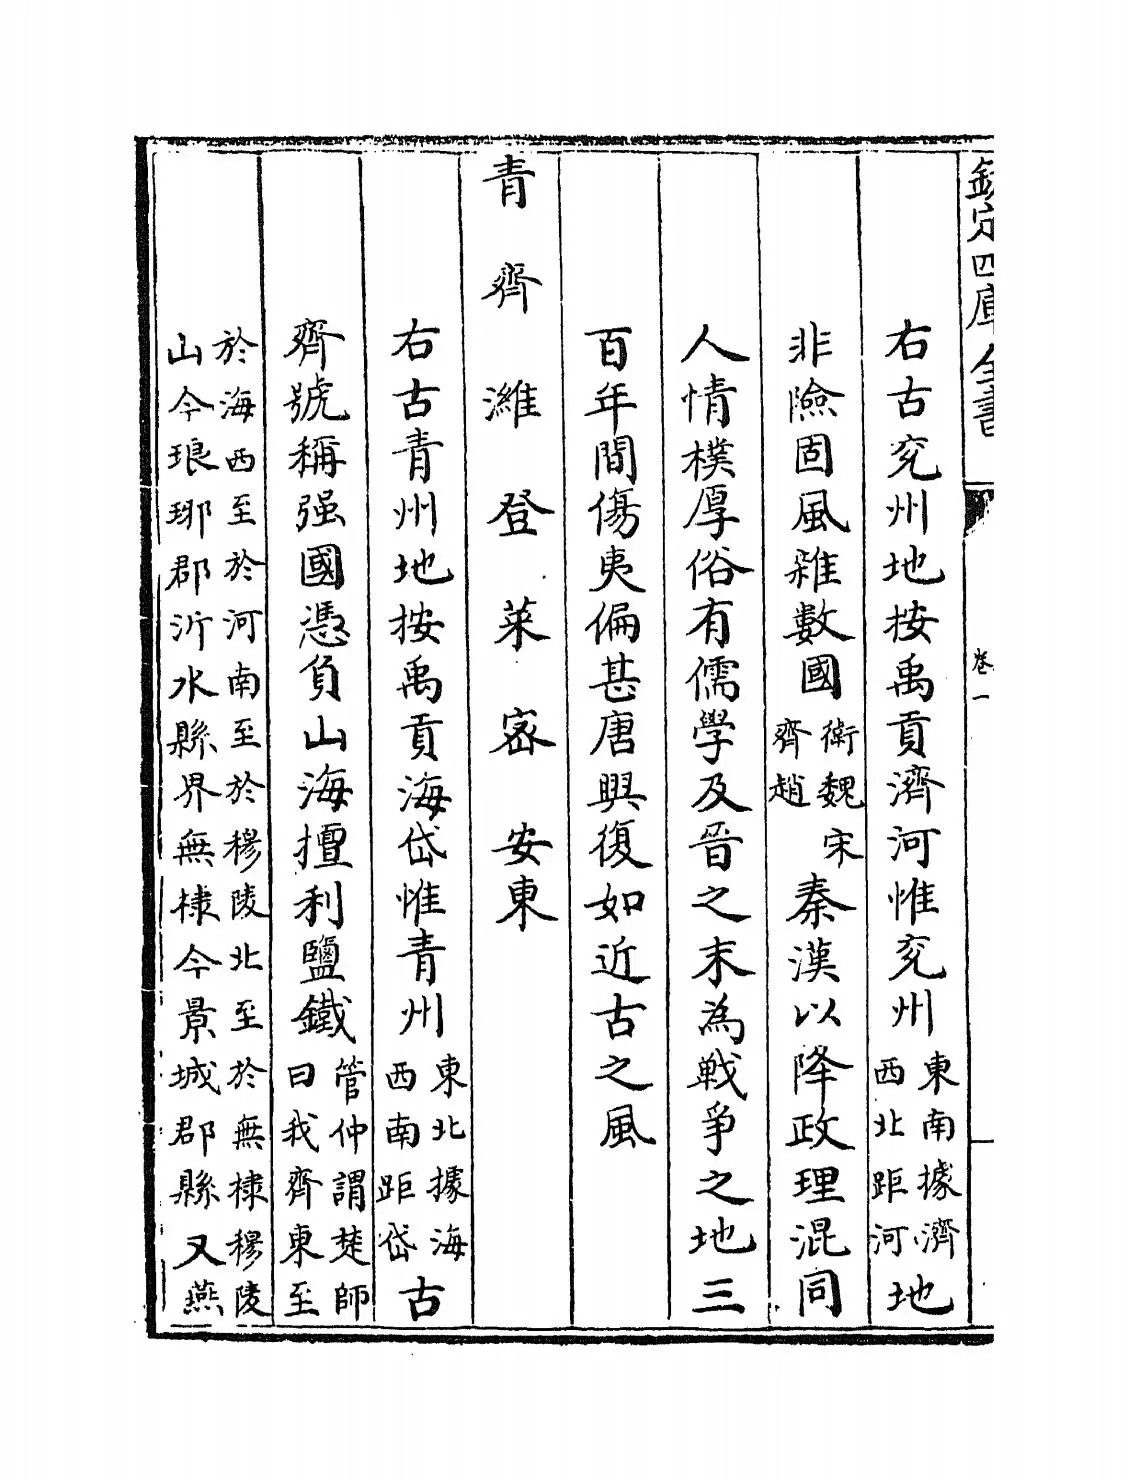 欽定四庫全書
卷一
右古兗州地按禹貢濟河惟兗州東南據濟西北距河地
非險固風雜數國衛魏宋齊趙秦漢以降政理混同
人情樸厚俗有儒學及晉之末為戰爭之地三
百年間傷夷偏甚唐興復如近古之風
青齊濰登萊密安東
右古青州地按禹貢海岱惟青州東北據海西南距岱古
齊號稱强國憑負山海擅利鹽鐵管仲謂楚師曰我齊東至
於海西至於河南至於穆陵北至於無棣穆陵
山今琅琊郡沂水縣界無棣今景城郡縣又燕